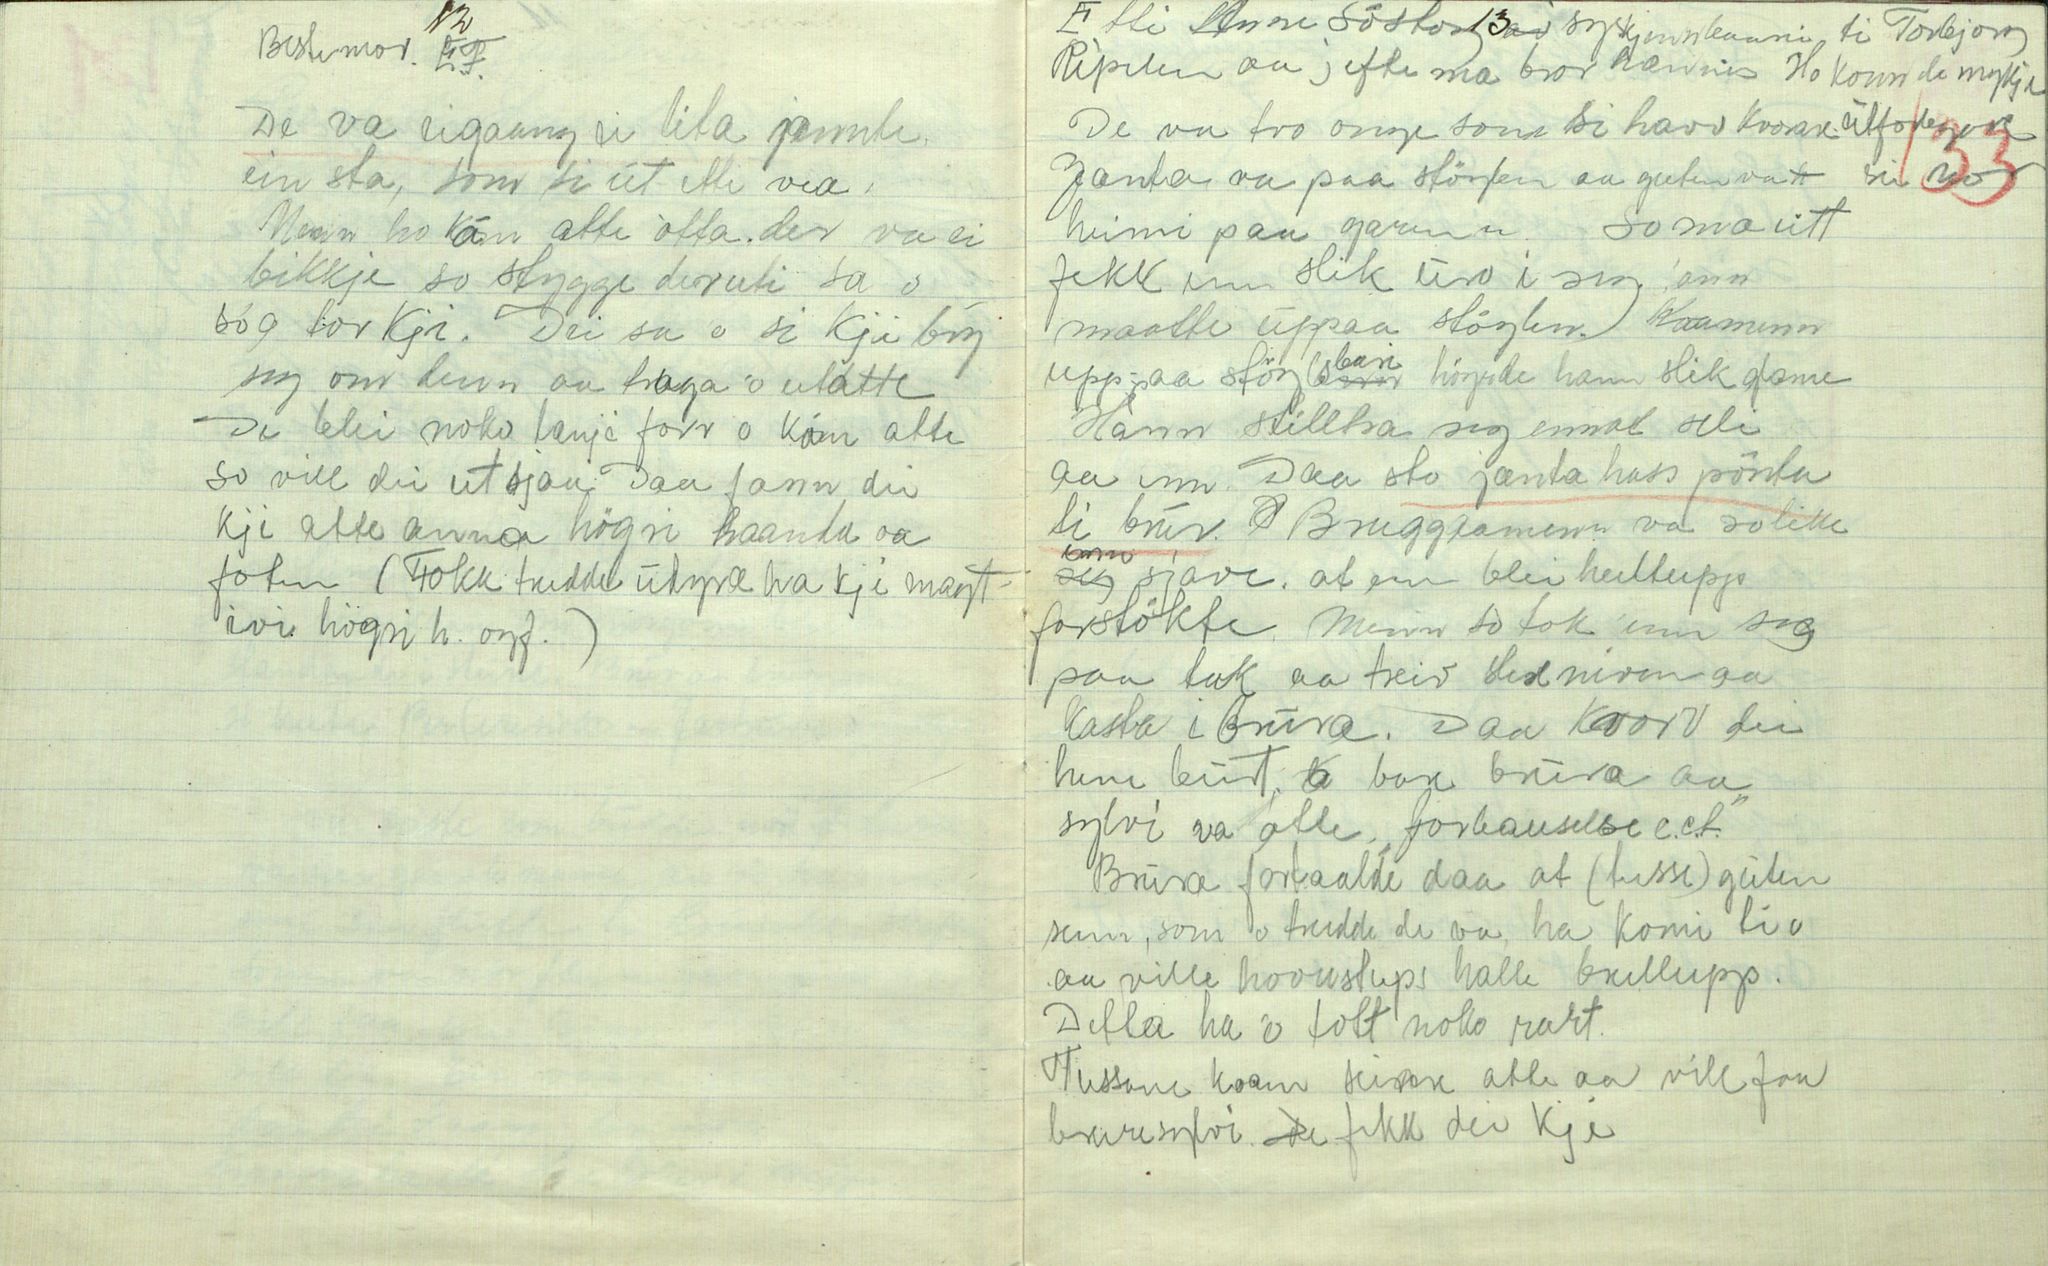 12
Bestemor. E.F.
De va eigaang ei lita jennte
ein sta, som si üt ette vea.
Menn ho kåm atte åtta. der va ei
bikkje so stygge deruti sa o
såg tor kji. Dei sa o si kji bry
sig om denn aa traga o utatte
De blei noko lanje forr o kåm atte
so vill dei ut sjaa. Daa fann dei
kji atte anna högri haanda oa
foten (Fokk trudde ütyræ ha kji magt
ivi högri h. og f.)
13
Etti Anne Söstog syskjennbaani ti Torbjorg
Ripelen aa jefte ma bror hannes Ho kounn de mykje
133
De va tvo onge som si havv kvorare
Janta va paa stöylen aa guten vatt
heimi paa garenn. So ma itt
fekk enn slik üro i seg, enn
maatte üppaa stöylen. Kaamenn
upp-paa stöyls höyrde hann slik glame
Hann stilltra seg ennat seli
aa enn. Daa sto janta hass pönta
ti brür. Bruggaamenn va so like
enn sjave. at enn blei heltupp
forstökte. Menn so tok enn seg
paa tak aa treiv niven aa
kasta i Brüra. Daa kvorv dei
hene bürt, bare brüra aa
sylvi va atte. forbauselse e.c.t."
Brüra fortaalde daa at (tusse) güten
senn, som o trudde de va, ha komi ti o
aa ville hovustups halle brullupp.
Detta ha o tott noko rart.
Tussane kaam seirare atte aa vill faa
bruresylvi. De fekk dei kji